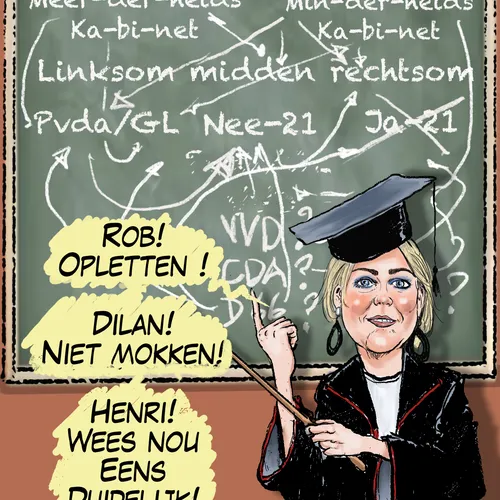 Meer-der-heids
Min-der-heids
Ka-bi-net
Ka-bi-net
Linksom midden rechtsom
Pvda/GL Nee-21 Ja-21
VVD
CDA
D66
? ? ? ? ?
ROB!
OPLETTEN !
DILAN!
NIET MOKKEN!
HENRI!
WEES NOU
EENS
DUIDELIJK!